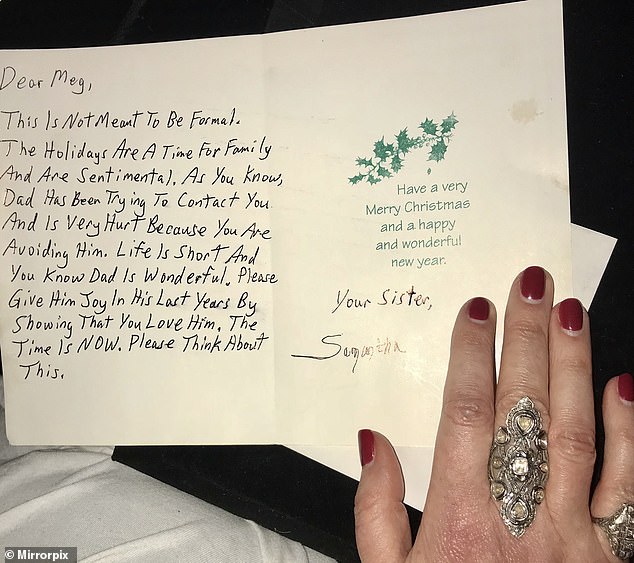 Dear Meg,
This Is Not Meant To Be Formal.
The Holidays Are A Time For Family
And Are Sentimental. As You Know,
Dad Has Been Trying To Contact You
And Is Very Hurt Because You Are
Avoiding Him. Life Is Short And
You Know Dad Is Wonderful. Please
Give Him Joy In His Last Years By
Showing That You Love Him. The
Time Is NOW. Please Think About
This.
Have a very
Merry Christmas
and a happy
and wonderful
new year.
Your Sister,
Samantha
© Mirrorpix